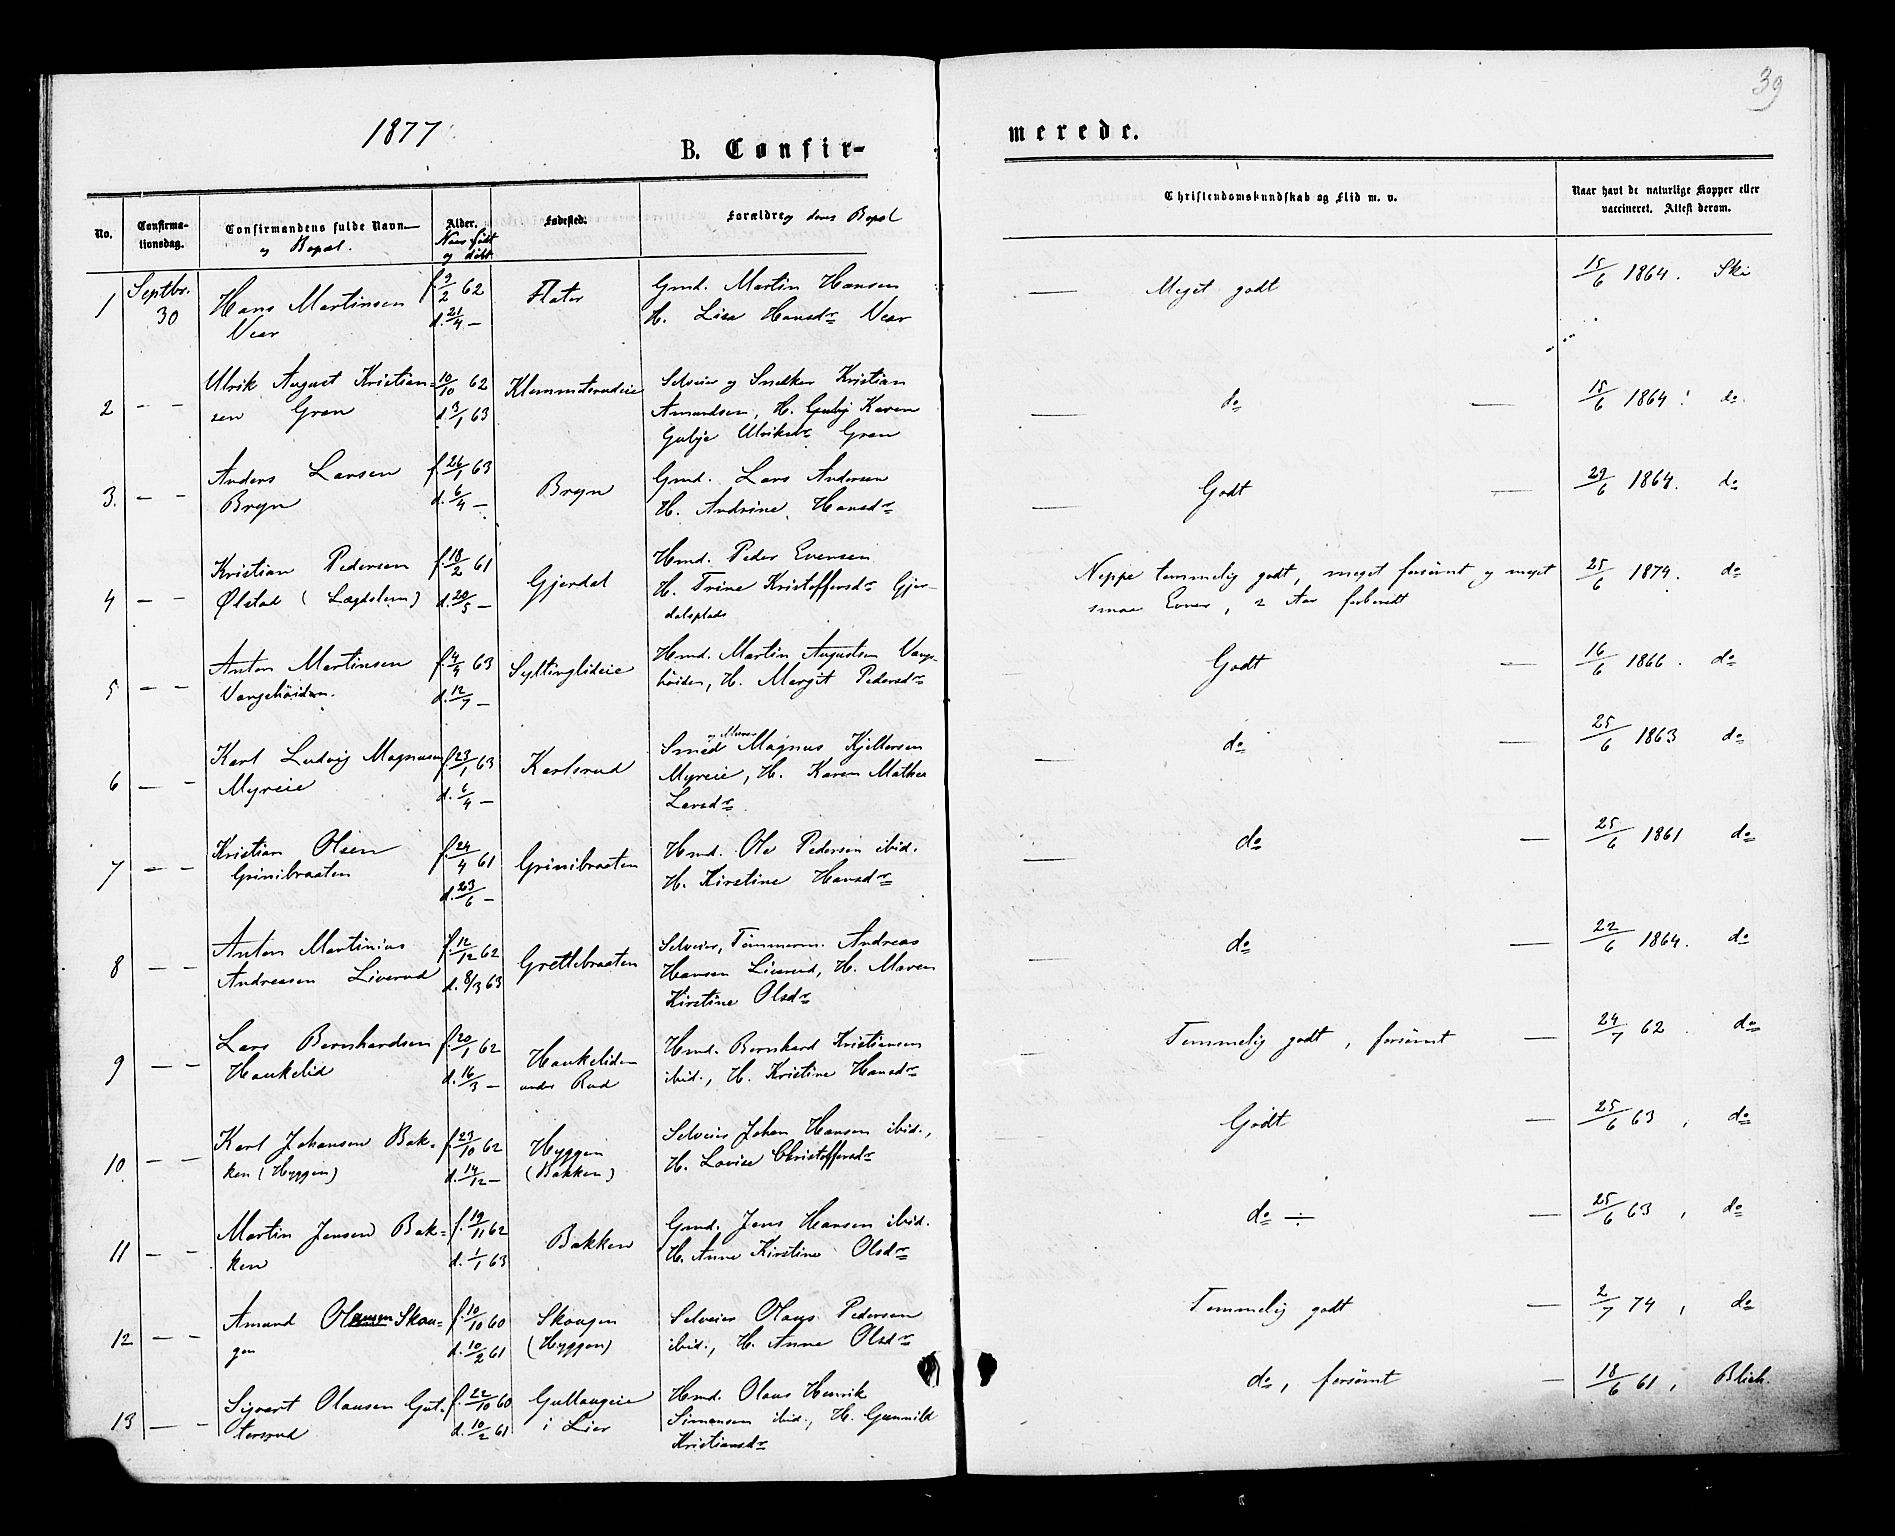 39
1877
B. Confir-
merede.
No.
Confirma-
tionsdag.
Confirmandens fulde Navn
og Bopæl.
Alder.
Naar født
og døbt
Fødested.
Forældre og deres Bopæl
Christendomskundskab og Flid m. v.
Naar havt de naturlige Kopper eller
vaccineret. Attest derom.
1 Septbr. 30
Hans Martinsen
Near
f. 9/2 62
d. 21/4 —
Flator
Gmd. Martin Hansen
H. Lise Hansdr Near
— Meget godt
15/6 1864. Ski
2 — —
Ulrik August Kristian-
sen Gran
10/10 62
d. 3/1 63
Klemmetsrudeie
Selveier og Snelker Kristian
Amundsen, H. Gubj Karen
Gubje Ulriksdr Gran
— do —
15/6 1864. do
3. — —
Anders Larsen
Bryn
f. 26/1 63
d. 6/4 —
Bryn
Gmd. Lars Andersen
H. Andrine Hansdr
— Godt —
29/6 1864. do
4 — —
Kristian Pedersen
Ølstad (Lægdslem)
f. 18/2 61
d. 20/5 —
Gjerdal
Hmd. Peder Evensen
H. Trine Kristoffersdr Gjer-
dalsplads
Neppe temmelig godt, meget forsømt og meget
smaa Evner, 2 Aar forberedt
25/6 1874. do
5 — —
Anton Martinsen
Vangehöiden.
f. 4/4 63
d. 12/7 —
Syltinglideie
Hmd. Martin Augustsen Vange-
höiden, H. Margit Pedersdr
Godt —
16/6 1866. do
6 — —
Karl Ludvig Magnusen
Myreie
f. 23/1 63
d. 6/4 —
Karlsrud
og Murer
Smed Magnus Kjeldersen
Myreie, H. Karen Mathea
Larsdr
— do —
25/6 1863 do
7 — —
Kristian Olsen
Grinibraaten
f. 24/4 61
d. 23/6 —
Grinibraaten
Hmd. Ole Pedersen ibid.
H. Kirstine Hansdr
— do —
25/6 1861 do
8 — —
Anton Martinius
Andreasen Liverud
f. 12/12 62
d. 8/3 63
Grettebraaten
Selveier, Tømmerm. Andreas
Hansen Liverud, H. Maren
Kirstine Olsdr
— do —
22/6 1864. do
9 — —
Lars Bernhardsen
Haukelid
f. 20/1 62
d. 16/3 —
Haukeliden
under Rud
Hmd. Bernhard Kristiansen
ibid., H. Kristine Hansdr
Temmelig godt, forsømt —
24/7 62. do
10. — —
Karl Johansen Bak-
ken (Hyggen)
f. 23/10 62
d. 14/12 —
Hyggen
(Bakken)
Selveier Johan Hansen ibid.,
H. Lovise Christoffersdr
Godt —
25/6 63, do
11 — —
Martin Jensen Bak-
ken
f. 19/11 62
d. 1/1 63
Bakken
Gmd. Jens Hansen ibid.
H. Anne Kirstine Olsdr
do ÷ —
25/6 63, do
12 — —
Amund Olausen Skau-
gen
f. 10/10 60
d. 10/2 61
Skaugen
(Hyggen)
Selveier Olaus Pedersen
ibid., H. Anne Olsdr
Temmelig godt —
2/7 74, do
13 — —
Sigvart Olausen Gut-
tersrud
f. 22/10 60
d. 10/2 61
Gullaugeie
i Lier
Hmd. Olaus Henrik
Simensen ibid., H. Gunnild
Kristiansdr
do, forsømt —
18/6 61, Blich.